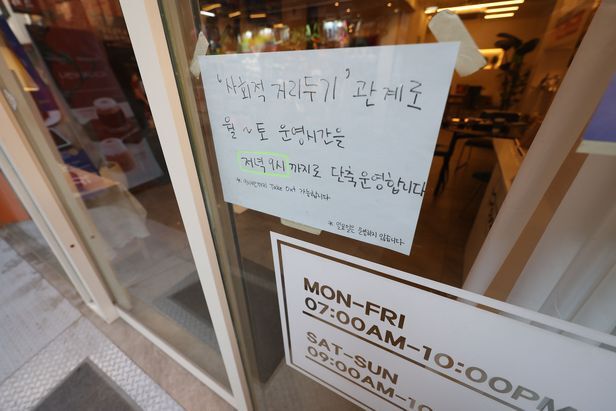 '사회적 거리두기' 관계로
월~토 운영시간을
저녁 9시 까지로 단축운영합니다
Take Out 가능합니다
* 일요일은 운영하지 않습니다
MON-FRI
07:00AM-10:00PM
SAT-SUN
09:00AM-10: